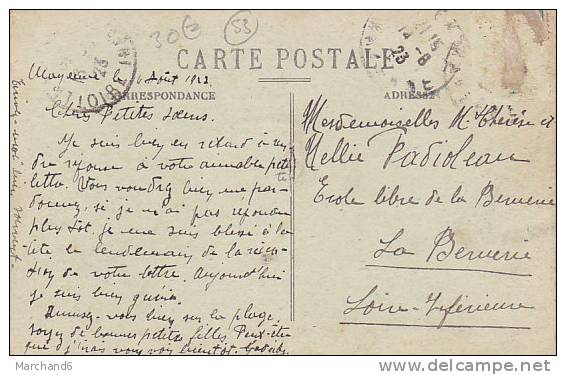 30€
53
CARTE POSTALE
CORRESPONDANCE
ADRESSE
Mayenne le 4 Août 1923
Chères Petites Sœurs.
Je suis bien en retard à ren
dre réponse à votre aimable petite
lettre. Vous voudrez bien me par-
donner, si je n'ai pas répondu
plus tôt, je me suis blessé à la
tête le lendemain de la récep-
tion de votre lettre. Aujourd'hui
je suis bien guéri.
Amusez-vous bien sur la plage,
soyez de bonnes petites filles. Peut-être
que j'irais vous voir bientôt.
Mesdemoiselles M. Thérèse et
Nellie Padioleau
Ecole libre de la Bernerie
La Bernerie
Loire-Inférieure
Marchand6
delcampe.net